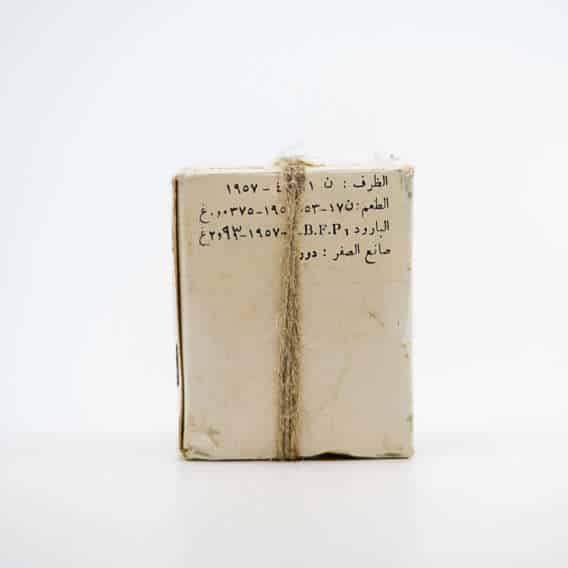 الظرف : ن ١ ٤ - ١٩٥٧
الطعم : ن ١٧-٥٣ ١٩٥-٠,٠٣٧٥غ
البارود B.F.P١ -١٩٥٧-٢,٩٣غ
صانع الصفر : دور